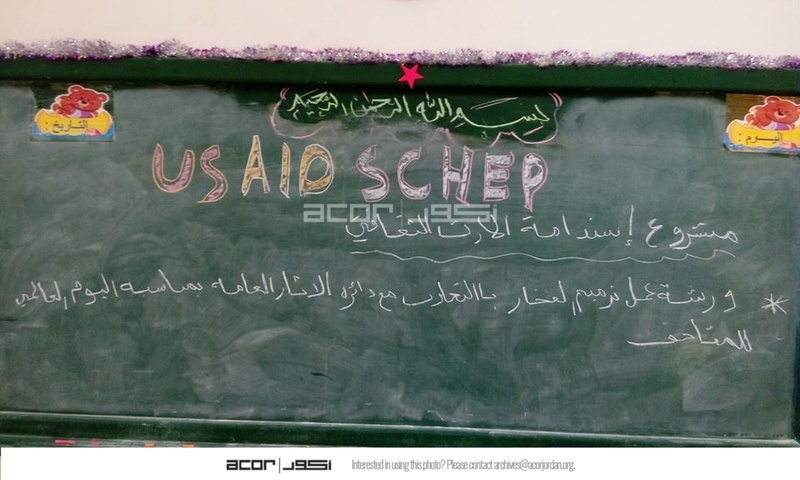 بسم الله الرحمن الرحيم
اليوم :
التاريخ :
USAID SCHEP
acor أكور
مشروع إستدامة الارث الثقافي
* ورشة عمل ترميم لفخار بالتعاون مع دائرة الاثار العامه بمناسبه اليوم العالمي
للمتاحف
acor | أكور Interested in using this photo? Please contact archives@acorjordan.org.